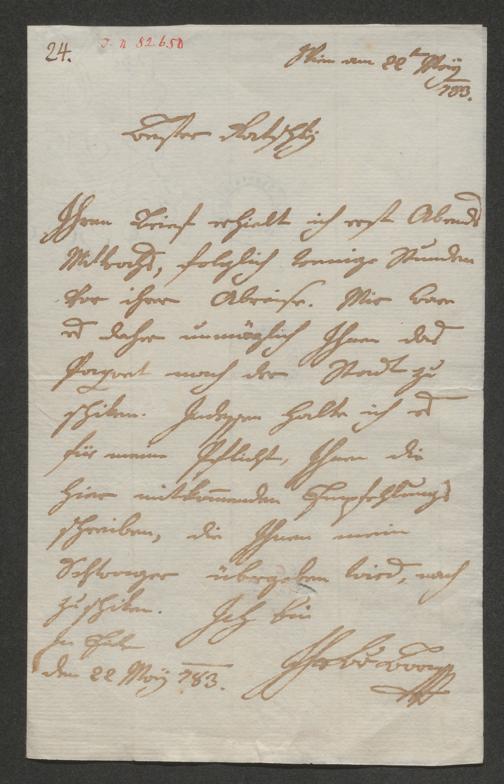 24.
J. N 82.650
Wien am 22t May
783.
Bester Ratschky
Ihren Brief erhielt ich erst Abends
Mittwochs, folglich wenige Stunden
vor ihrer Abreise. Mir war
es daher unmöglich Ihnen das
Paquet nach der Stadt zu
schiken. Indessen halte ich es
für meine Pflicht, Ihnen die
hier mitkommenden Empfehlungs
schreiben, die Ihnen mein
Schwager übergeben wird, nach
zuschiken. Ich bin
in Eile
den 22 May 783.
Ihr